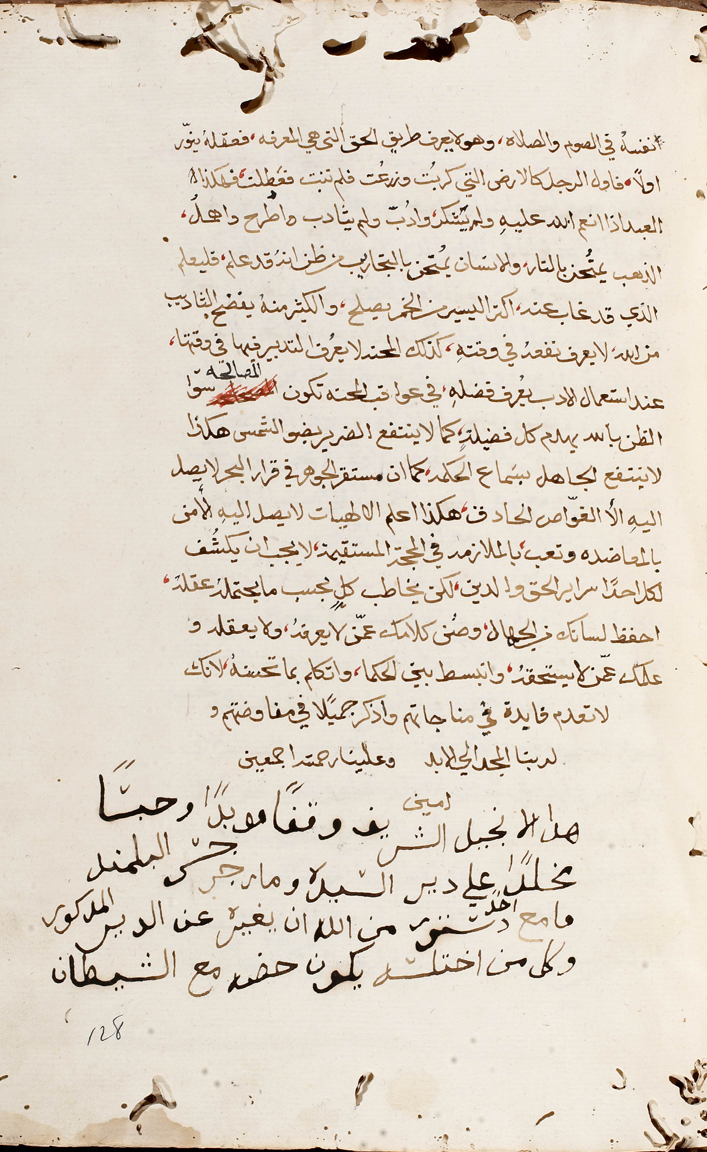 نفسهُ في الصوم والصلاه، وهو لا يعرف طريق الحق التي هي المعرفه، فعقلهُ ينوّر
اولاً، فاول الرجل كالارض التي كربُت وزرعُت فلم تنبت فعَطلت، فهكذا
العبد اذا انعم الله عليهِ ولم يتشكر وادُبّ ولم يتادب واطُرح واهملُ،
الذهب يمتُحن بالنار، والانسان يمُتحن بالتجاريب من ظن انهُ قد علم، فليعلم
الذي قد غاب عنهُ، اكتر اليسير من الخمر يصلح، والكثير منهُ يفضح التاديب
من الله، لا يعرف نفعهُ في وقتهِ، كذلك المحنه لا يعُرف التدبير فيها في وقتها،
عند استعمال الادب يعُرف فضلهِ، في عواقب المحنه تكون المصالحه سوّا
الظن بالله يهدم كل فضيلةٍ، كما لا ينتفع الضرير بضو الشمس هكذا
لا ينتفع الجاهل بسَماع الحكمه، كما ان مستقر الجوهر في قرار البحر لا يصل
اليهِ الاّ الغوّاص الحادق، هكذا اعلم الالهيات لا يصل اليهِ الا من
بالمعاضده وتعب، بالملازمه في المحجة المستقيمة، لا يجب ان يكشُف
لكل احدًا سراير الحق والدين، لكن يخاطب كلٍ بحسب ما يحتملهُ عقلهُ،
احفظ لسانك من الجهال، وصُن كلامك عمّن لا يعرفهُ، ولا يعقلهُ و
علمك عمّن لا يستحقهُ، وانبسط بين الحكما، واتكلم بما تحسنهُ، لانك
لا تعدم فايدة في مناجاتهم واذكر جميًلا في مفاوضتهم و
لربنا المجد الي الابد وعلينا رحمته اجمعين
امين
هدا الانجيل الشريف وقفًا موبدًا وحبسًا
مخلدًا علي دير السيدة ومار جرجس البلمند
وما مع احدًا دستور من الله ان يغيره عن الدير المدكور
وكل من اختلسه يكون حضه مع الشيطان
128